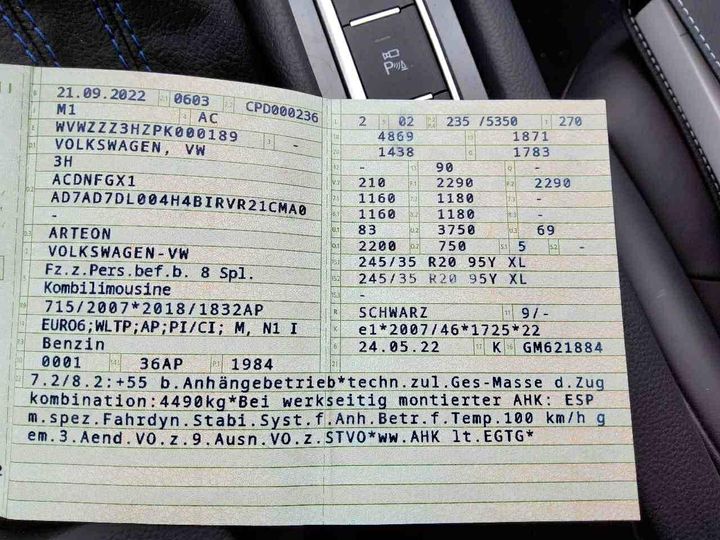 21.09.2022 0603 CPD000236
M1 AC
WVWZZZ3HZPK000189 -
VOLKSWAGEN, VW
3H
ACDNFGX1
AD7AD7DL004H4BIRVR21CMA0
-
ARTEON
VOLKSWAGEN-VW
Fz.z.Pers.bef.b. 8 Spl.
Kombilimousine
715/2007*2018/1832AP
EURO6;WLTP;AP;PI/CI; M, N1 I
Benzin
0001 36AP 1984
2 02 235 /5350 270
4869 1871
1438 1783
- 90 -
210 2290 2290
1160 1180 -
1160 1180 -
83 3750 69
2200 750 5 -
245/35 R20 95Y XL
245/35 R20 95Y XL
-
SCHWARZ 9/-
e1*2007/46*1725*22
24.05.22 K GM621884
7.2/8.2:+55 b.Anhängebetrieb*techn.zul.Ges-Masse d.Zug
kombination:4490kg*Bei werkseitig montierter AHK: ESP
m.spez.Fahrdyn.Stabi.Syst.f.Anh.Betr.f.Temp.100 km/h g
em.3.Aend.VO.z.9.Ausn.VO.z.STVO*ww.AHK lt.EGTG*